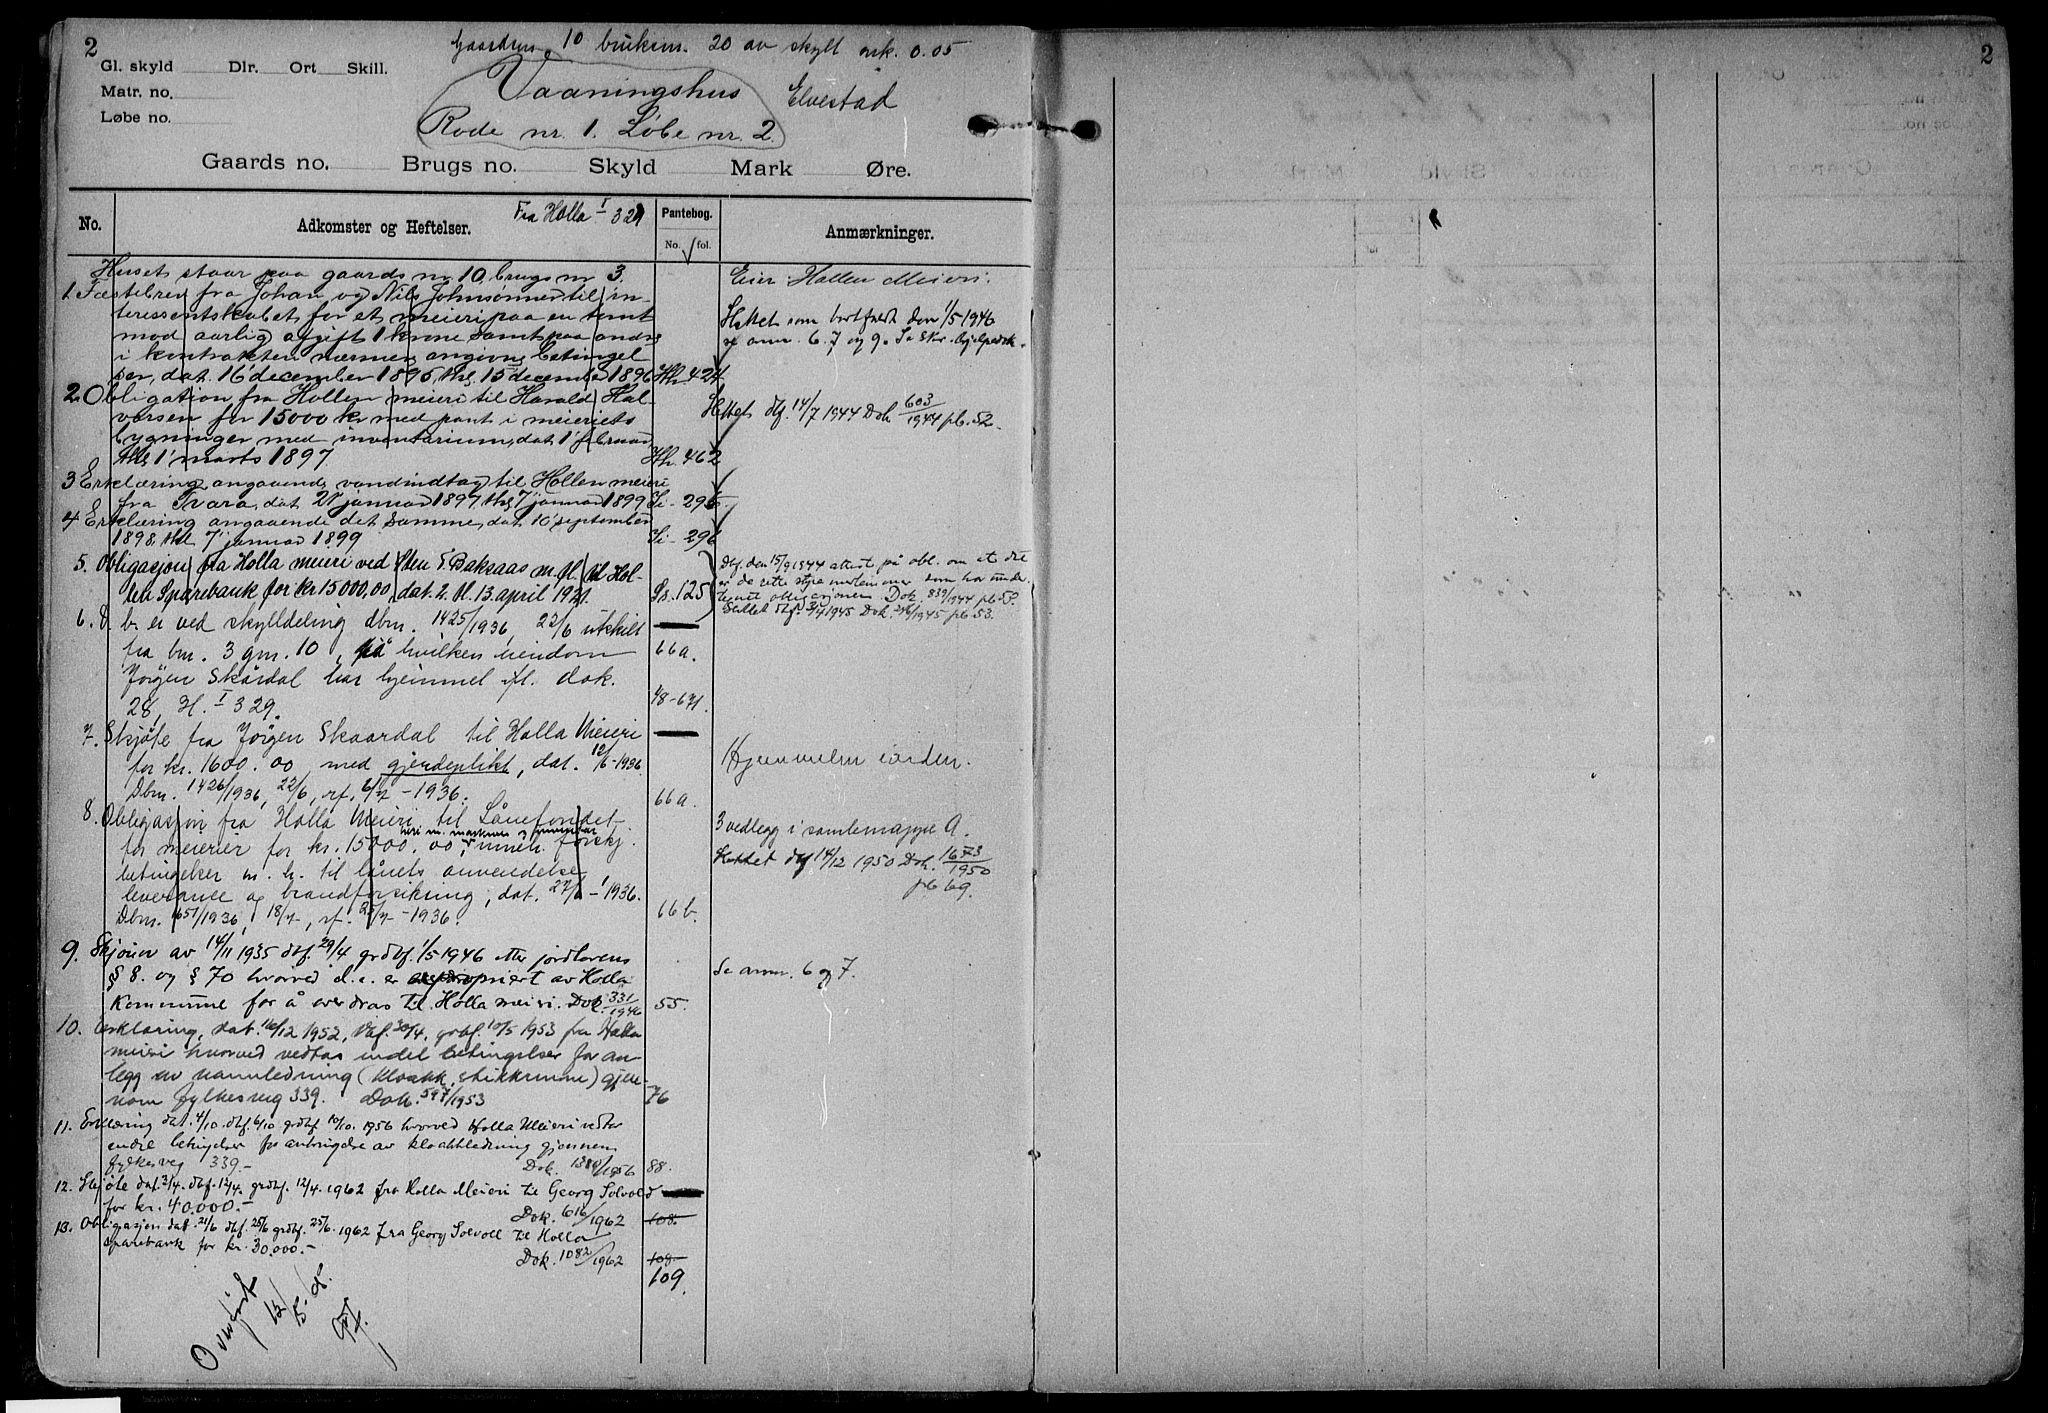 2
Gaardsnr. 10 bruksnr. 20 av skyld mrk. 0.05
Gl. skyld Dlr. Ort Skill.
Matr. no.
Løbe no.
Vaaningshus Elvestad
Rode nr. 1. Løbe nr. 2.
Gaards no. Brugs no. Skyld Mark Øre.
No. Adkomster og Heftelser. Fra Holla I 329 Pantebog. No. fol. Anmærkninger.
Huset staar paa gaards nr 10, brugs nr 3.
1. Fæstebrev fra Johan og Nils Johnsønner til in-
teressentskabet for et meieri paa en tomt
mod aarlig afgift 1 krone samt paa andre
i kontrakten nærmere angivne betingel
ser, dat. 16 december 1895, thl. 15 december 1896 Hh. 424
2. Obligation fra Hollen meieri til Harald Hal-
vorsen for 15000 kr med pant i meieriets
bygninger med inventarium, dat 1' februar
thl 1' marts 1897. Hh. 462
3 Erklæring angaaende vandindtag til Hollen meieri
fra Tvara, dat 21 januar 1897, thl 7 januar 1899 Ii - 295
4 Erklæring angaaende det samme, dat 10' september
1898, thl 7' januar 1899 Ii - 296
5. Obligasjon fra Holla meieri ved Sten S. Baksaas m. fl. til Hol-
len Sparebank for kr 15000,00, dat. 2. tl. 13. april 1921. 125
6. D. b. er ved skylddeling dbnr. 1425/1936, 22/6 utskilt
fra bnr. 3 gnr. 10, på hvilken eiendom 66a.
Jörgen Skårdal har hjemmel ifl. dok.
28, H. I 329. 48-671.
7. Skjöte fra Jörgen Skaardal til Holla Meieri
for kr. 1600.00, med gjerdeplikt, dat. 12/6-1936.
Dbnr. 1426/1936, 22/6, rf. 6/7-1936. 66a.
8. Obligasjon fra Holla Meieri til Lånefondet
for meierier for kr. 15000.00, inneh. forskj.
betingelser m. h. til lånets anvendelse
leveranse og brandforsikring, dat. 27/6-1936.
Dbnr. 1651/1936, 18/7, rf. 25/7-1936. 66b.
9. Skjönn av 14/11 1935 dbf. 29/4 grdbf. 1/5 1946 etter jordlovens
§ 8. og § 70 hvorved d.e. er expropriert av Holla
Kommune for å overdras til Holla meieri. Dok 331/1946 55.
10. Erklæring, dat. 16/12 1952, dbf. 30/4, grbf. 10/5 1953 fra Holla
meieri hvorved vedtas endel betingelser for an-
legg av vannledning (kloakk, stikkrenne) gjen-
nom fylkesveg 339. Dok. 597/1953 76
11. Erklæring dat. 4/10. dbf. 6/10 grdbf 10/10. 1956 hvorved Holla Meieri vedtar
endel betingelser for anbringelse av kloakkledning gjennem
fylkesveg 339.- Dok. 1380/1956 88.
12. Skjöte dat. 3/4. dbf. 12/4. grdbf. 12/4. 1962 fra Holla Meieri til Georg Solvold
for kr. 40.000.- Dok. 616/1962 108.
13. Obligasjon dat. 21/6 dbf. 25/6 grdbf. 25/6. 1962 fra Georg Solvoll til Holla
sparebank for kr. 30.000.- Dok. 1082/1962 108.
109.
Overfört
Eier Hollen Meieri.
Slettet som bortfalt den 1/5 1946
se anm. 6. 7 og 9.
Slettet dbf. 14/7 1944 Dok 603/1944 pb. 52.
Dbf. den 15/9 1944 attest på obl. om at det
er de rette styremedlemmer som har under-
tegnet obligasjonen. Dok. 839/1944 pb 52.
Slettet dbf. 3/4 1945 Dok. 216/1945 pb 53.
Hjemmelen i orden.
3 vedlegg i samlemappe A.
Slettet dbf 14/12 1950 Dok. 1673/1950
pb 69.
Se anm. 6 og 7.
2